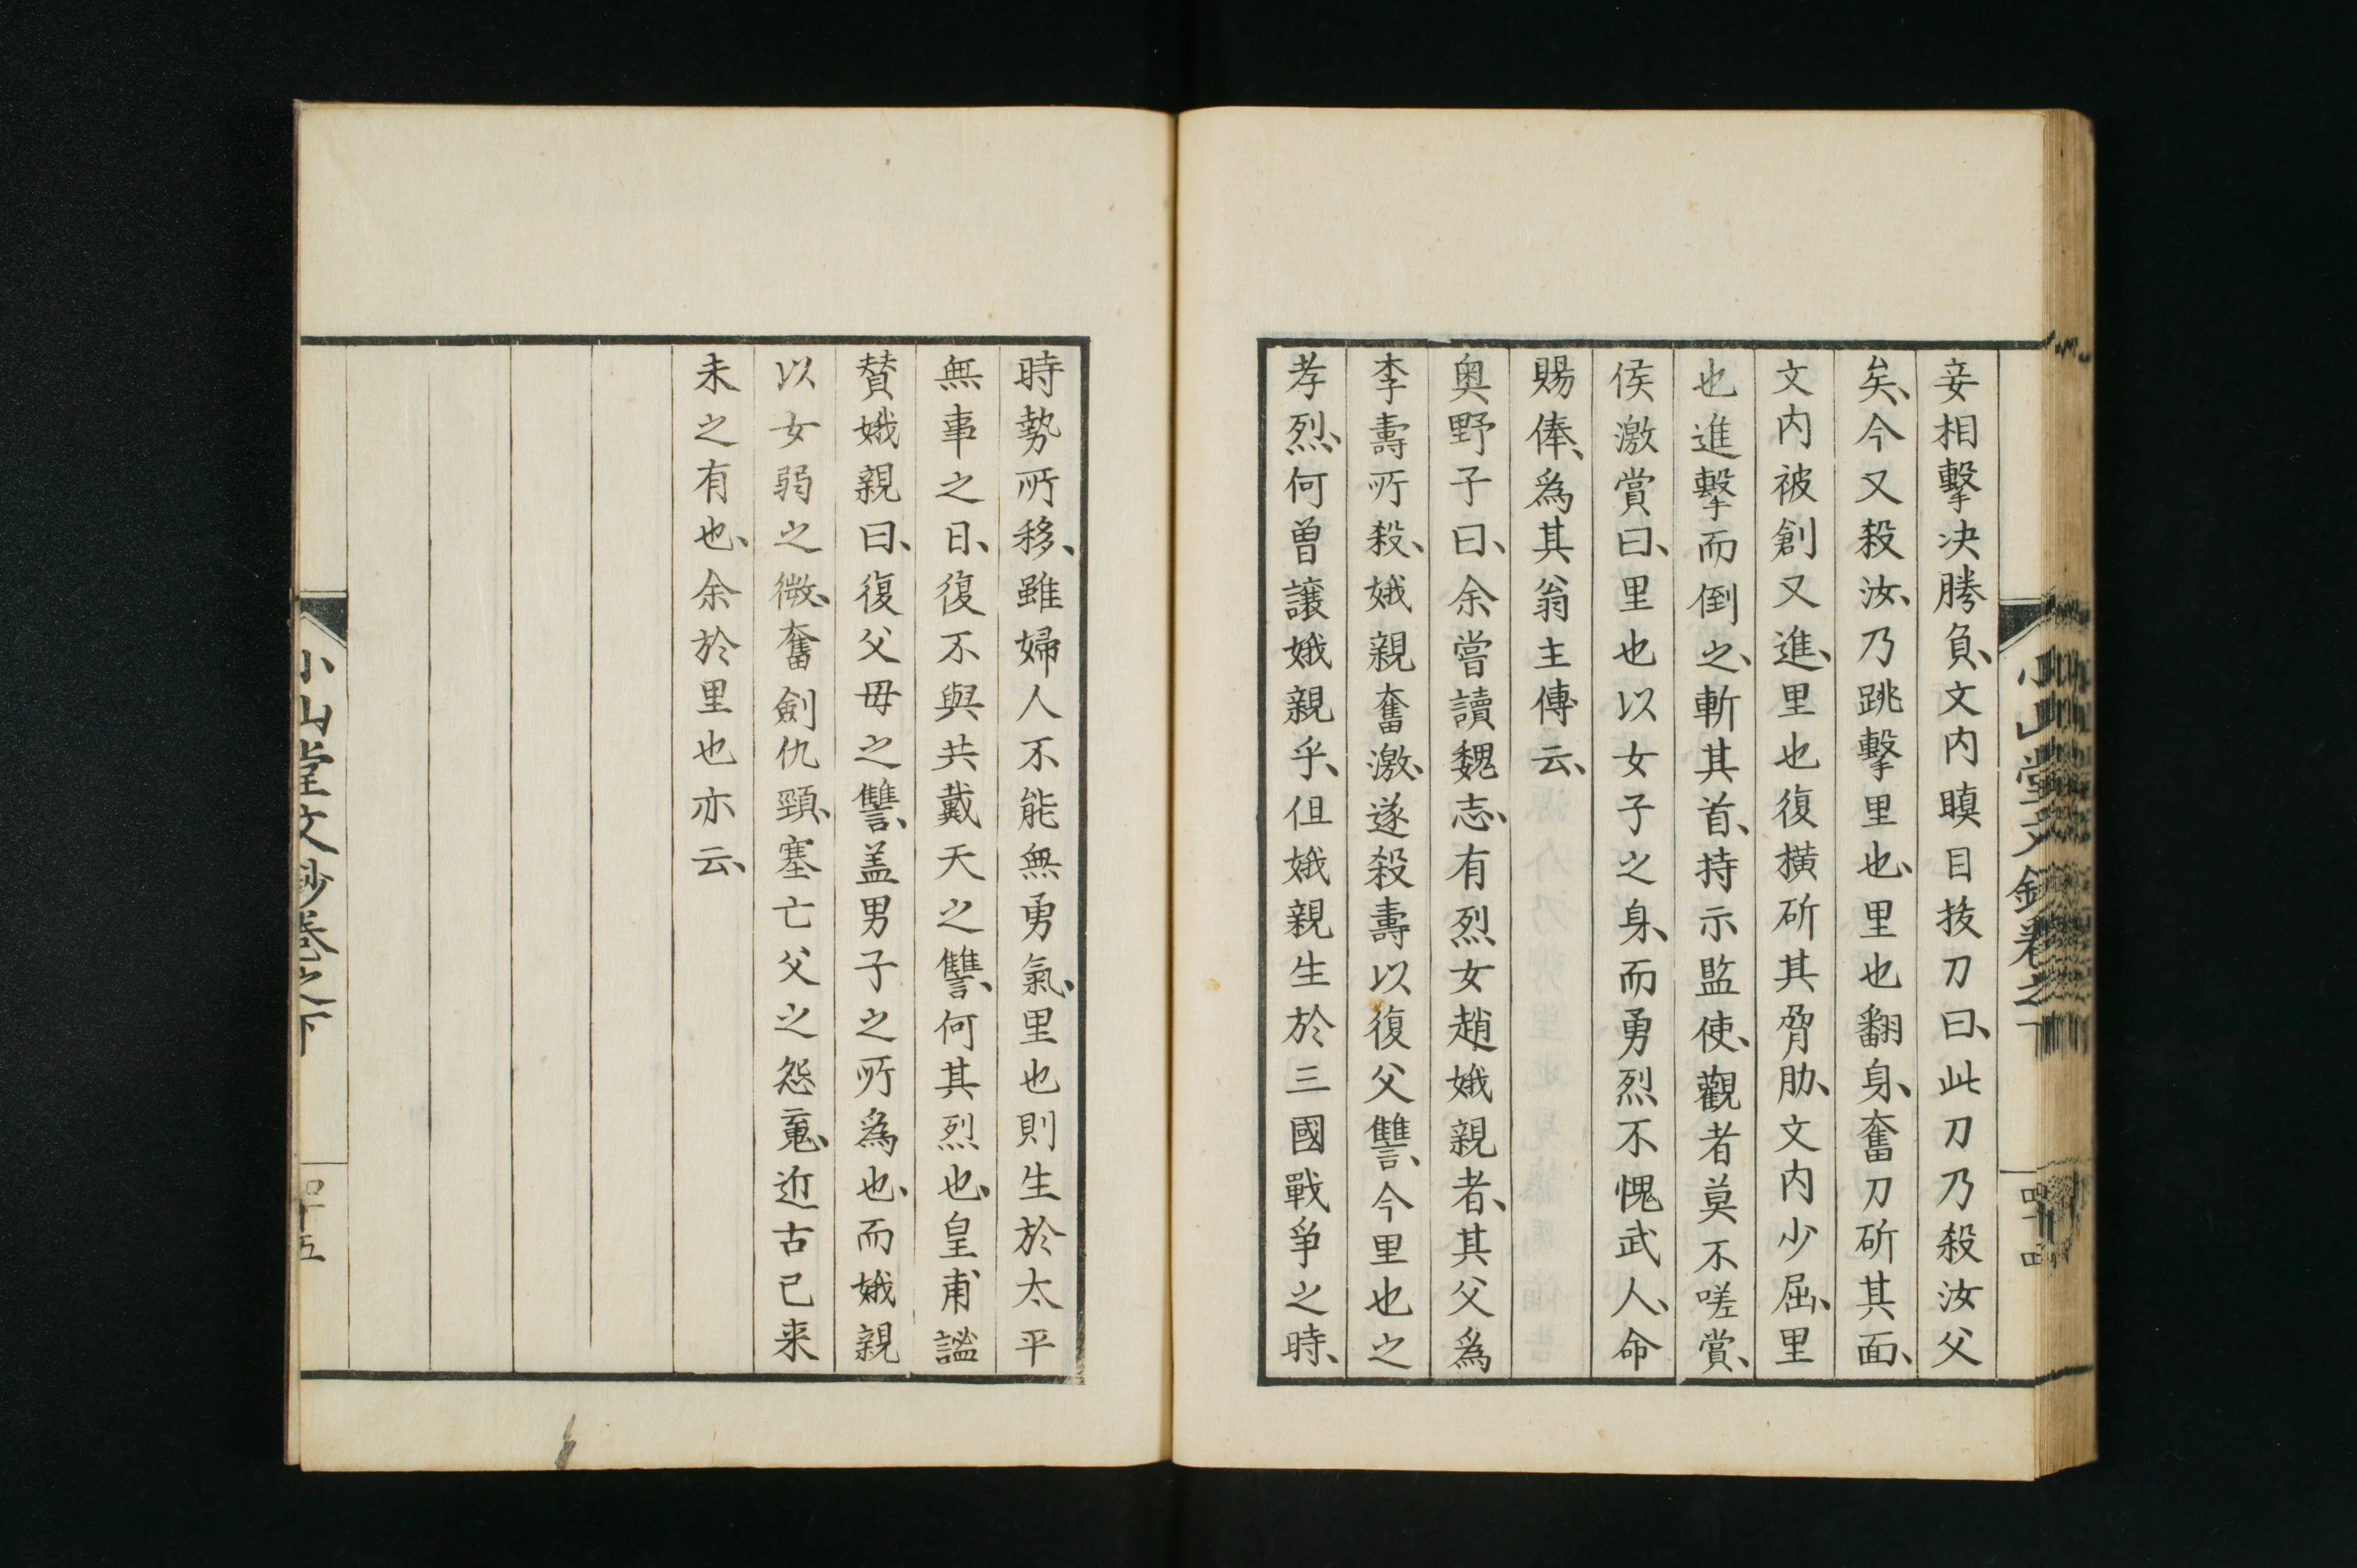 妾相擊决勝負、文内瞋目抜刀曰、此刀乃殺汝父
矣、今又殺汝、乃跳擊里也、里也翻身、奮刀斫其面、
文内被創又進、里也復横斫其脅肋、文内少屈、里
也進擊而倒之、斬其首、持示監使、觀者莫不嗟賞、
侯激賞曰、里也以女子之身、而勇烈不愧武人、命
賜俸、爲其翁主傳云、
奥野子曰、余嘗讀魏志、有烈女趙娥親者、其父爲
李壽所殺、娥親奮激、遂殺壽以復父讐、今里也之
孝烈、何曽讓娥親乎、但娥親生於三國戰爭之時、
時勢所移、雖婦人不能無勇氣、里也則生於太平
無事之日、復不與共戴天之讐、何其烈也、皇甫謐
賛娥親曰、復父毋之讐、盖男子之所爲也、而娥親
以女弱之微、奮劍仇頸、塞亡父之怨䰟、近古已来
未之有也、余於里也亦云、
小山堂文鈔卷之下
四十五